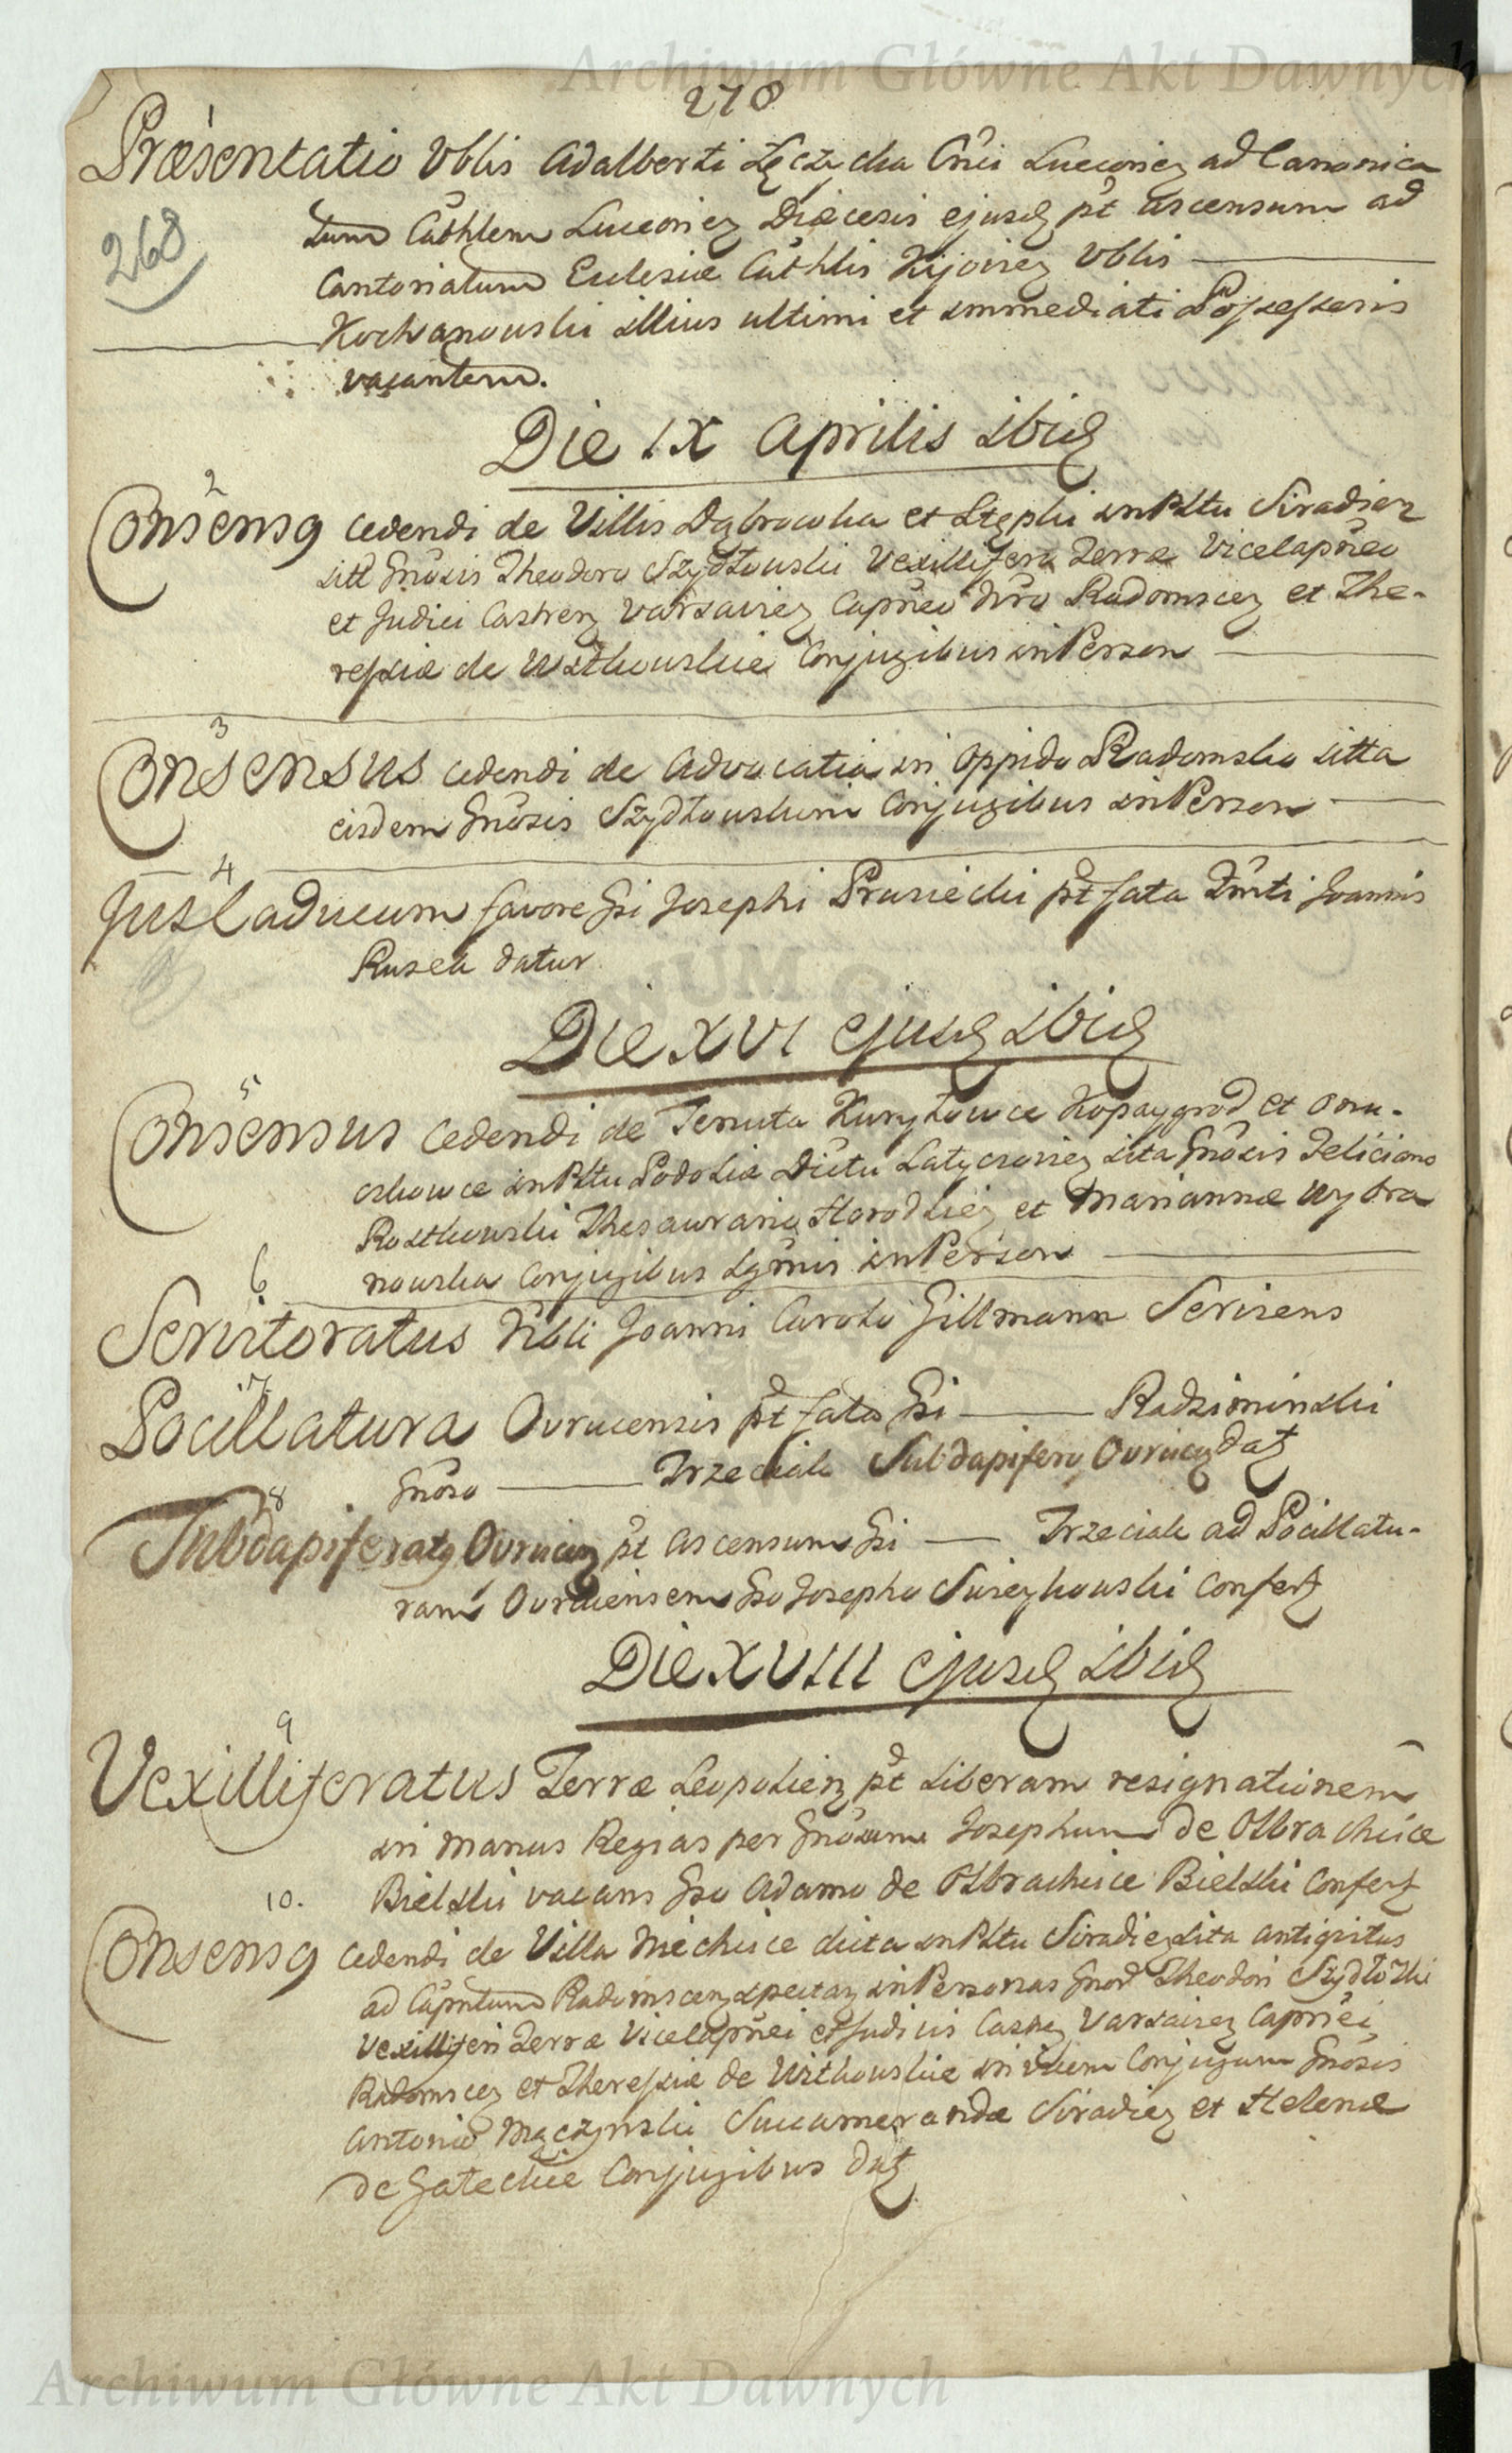 Archiwum Główne Akt Dawnych
278
1
Præsentatio Vblis Adalberti Łęczycka Cnci Luceorien ad Canonica
268
tum Cathlem Luceorien Diæcesis ejusd pt ascensum ad
Cantoriatum Eclesiæ Cathlis Kijovien Vblis
Kochanowski illius ultimi et immediati Possessoris
vacantem.
Die IX Aprilis ibid
2
Consensq cedendi de Villis Dąbrowka et Stępki in Pltu Siradien
sitt Gnosis Theodoro Szydłowski Vexillifero Terræ Vicelapneo
et Judici Castren Varsavien Capneo Nro Radomscen et The-
ressiæ de Witkowskie Conjugibus in Person
3
Consensus cedendi de Advocatia in Oppido Radomsko sitta
eisdem Gnosis Szydłowskim Conjugibus in Person
4
Jus Caducum favore Gsi Josephi Prusiecki pt fata Joannis
Rusek datur
Die XVI ejusd ibid
5
Consensus cedendi de Tenuta Kuryłowce Kopaygrod et
in Pltu Podoliæ Dictu Latyczovien sita Gnosis Feliciano
Rostkowski Thesaurario Horodlien et Mariannæ Wybra
nowska Conjugibus Lgmis in Person
6
Servitoratus Nbli Joanni Carolo Gillmann Serviens
7
Pocillatura Ovrucensis pt fata Gsi Radziminski
Gnoso Trzeciak Subdapifero Ovrucen dat
8
Subdapiferatq Ovrucen pt ascensum Gsi Trzeciak ad Pocillatu-
ram Ovrucensem Gso Josepho Surzykowski Confert
Die XVIII ejusd ibid
9
Vexilliferatus Terræ Leopolien pt liberam resignationem
in manus Regias per Gnosum Josephum de Olbrachcice
Bielski vacans Gso Adamo de Olbrachcice Bielski Confert
10.
Consensq cedendi de Villa Mechcice dicta in Pltu Siradien sita antiqvitus
ad Capntum Radomscen spectan in Personas Gnor Theodori Szydłowski
Vexilliferi Terræ Vicelapnei et Judicis Casten Varsavien Capnei
Radomscen et Theressiæ de Witkowskie invicem Conjugum Gnosis
Antonio Mączynski Succamerandæ Siradien et Helenæ
de Gateckie Conjugibus Dat
Archiwum Główne Akt Dawnych